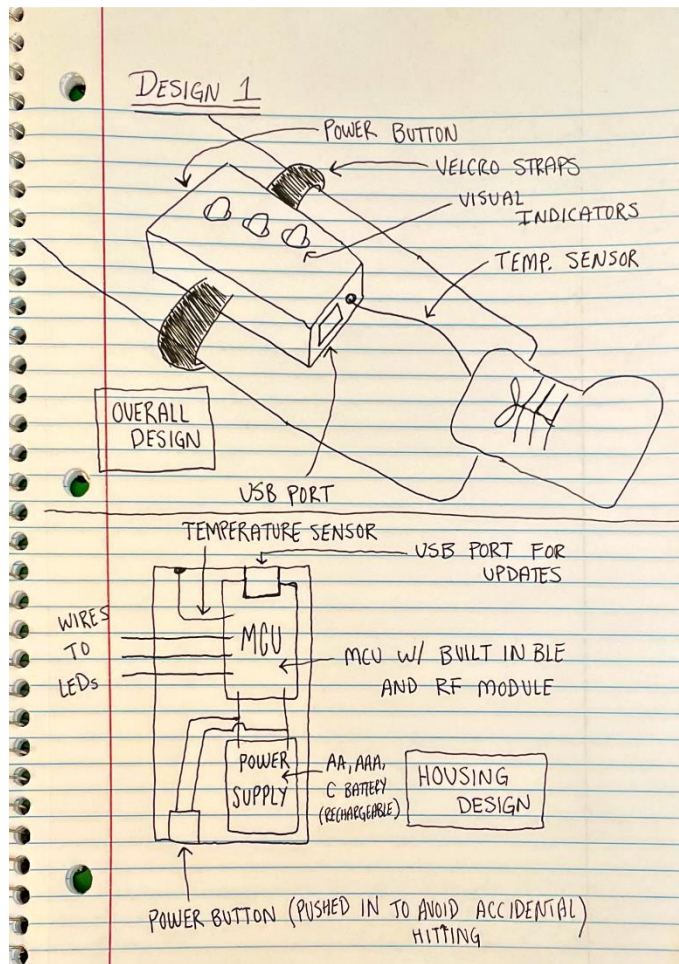 DESIGN 1
POWER BUTTON
VELCRO STRAPS
VISUAL
INDICATORS
TEMP. SENSOR
OVERALL
DESIGN
USB PORT
TEMPERATURE SENSOR
USB PORT FOR
UPDATES
WIRES
TO
LEDs
MCU
MCU W/ BUILT IN BLE
AND RF MODULE
POWER
SUPPLY
AA, AAA,
C BATTERY
(RECHARGEABLE)
HOUSING
DESIGN
POWER BUTTON (PUSHED IN TO AVOID ACCIDENTAL)
HITTING